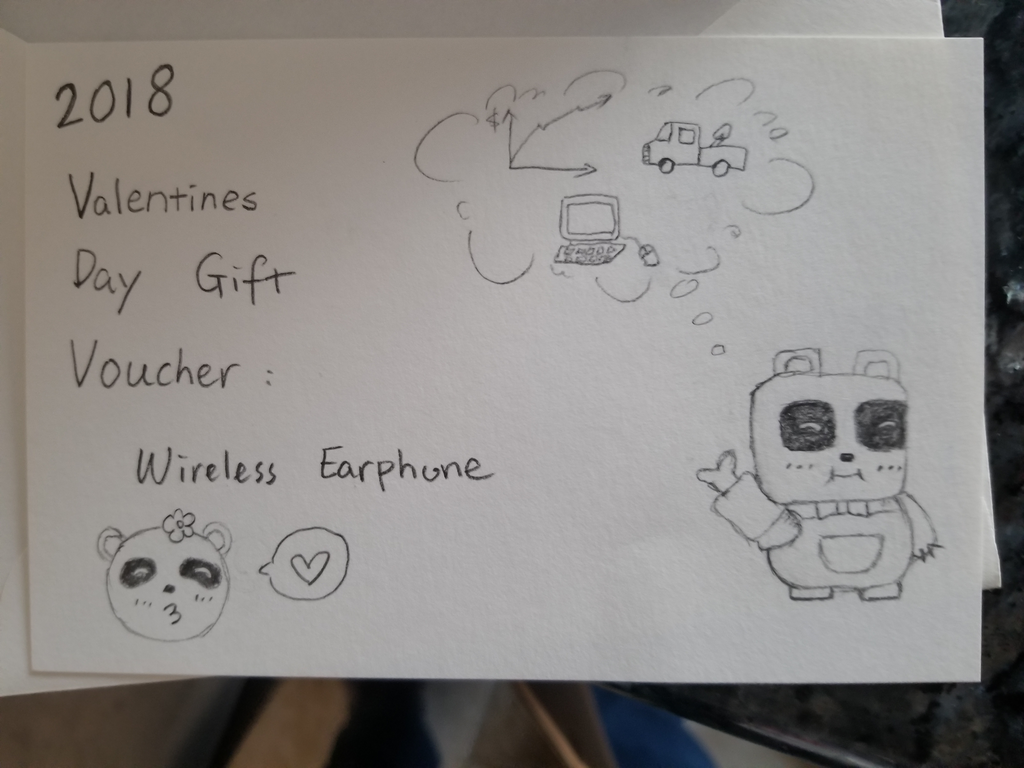 2018
Valentines
Day Gift
Voucher :
Wireless Earphone
$